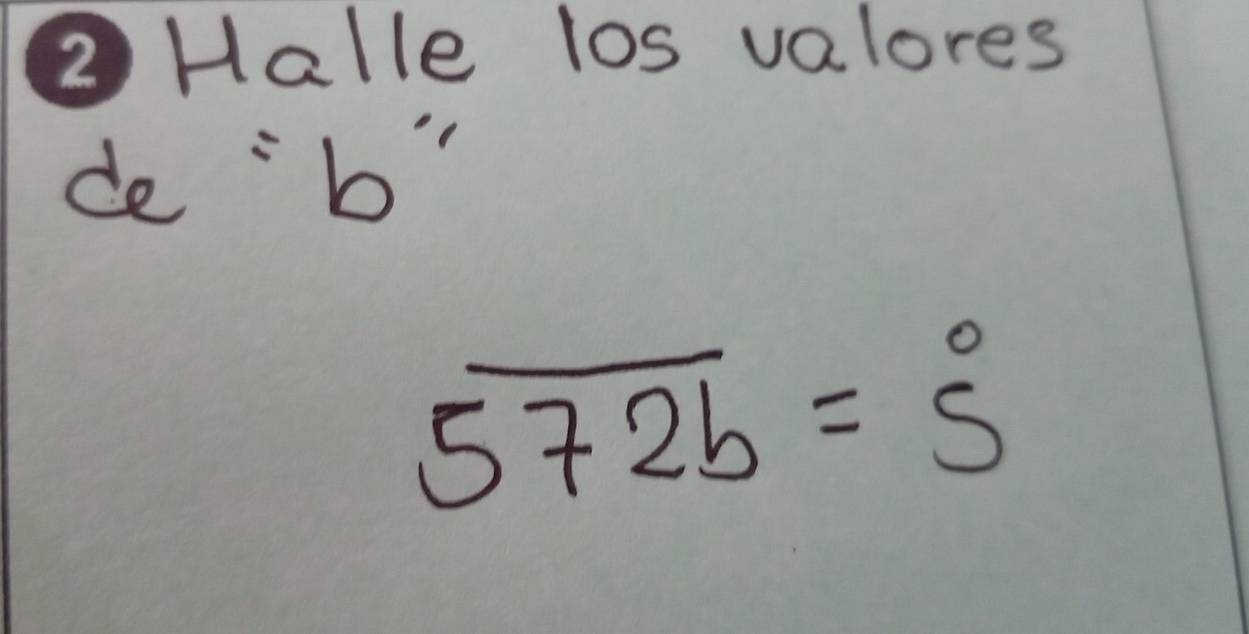 2 Halle los valores
de "b"
$\overline{572b} = \overset{\circ}{5}$